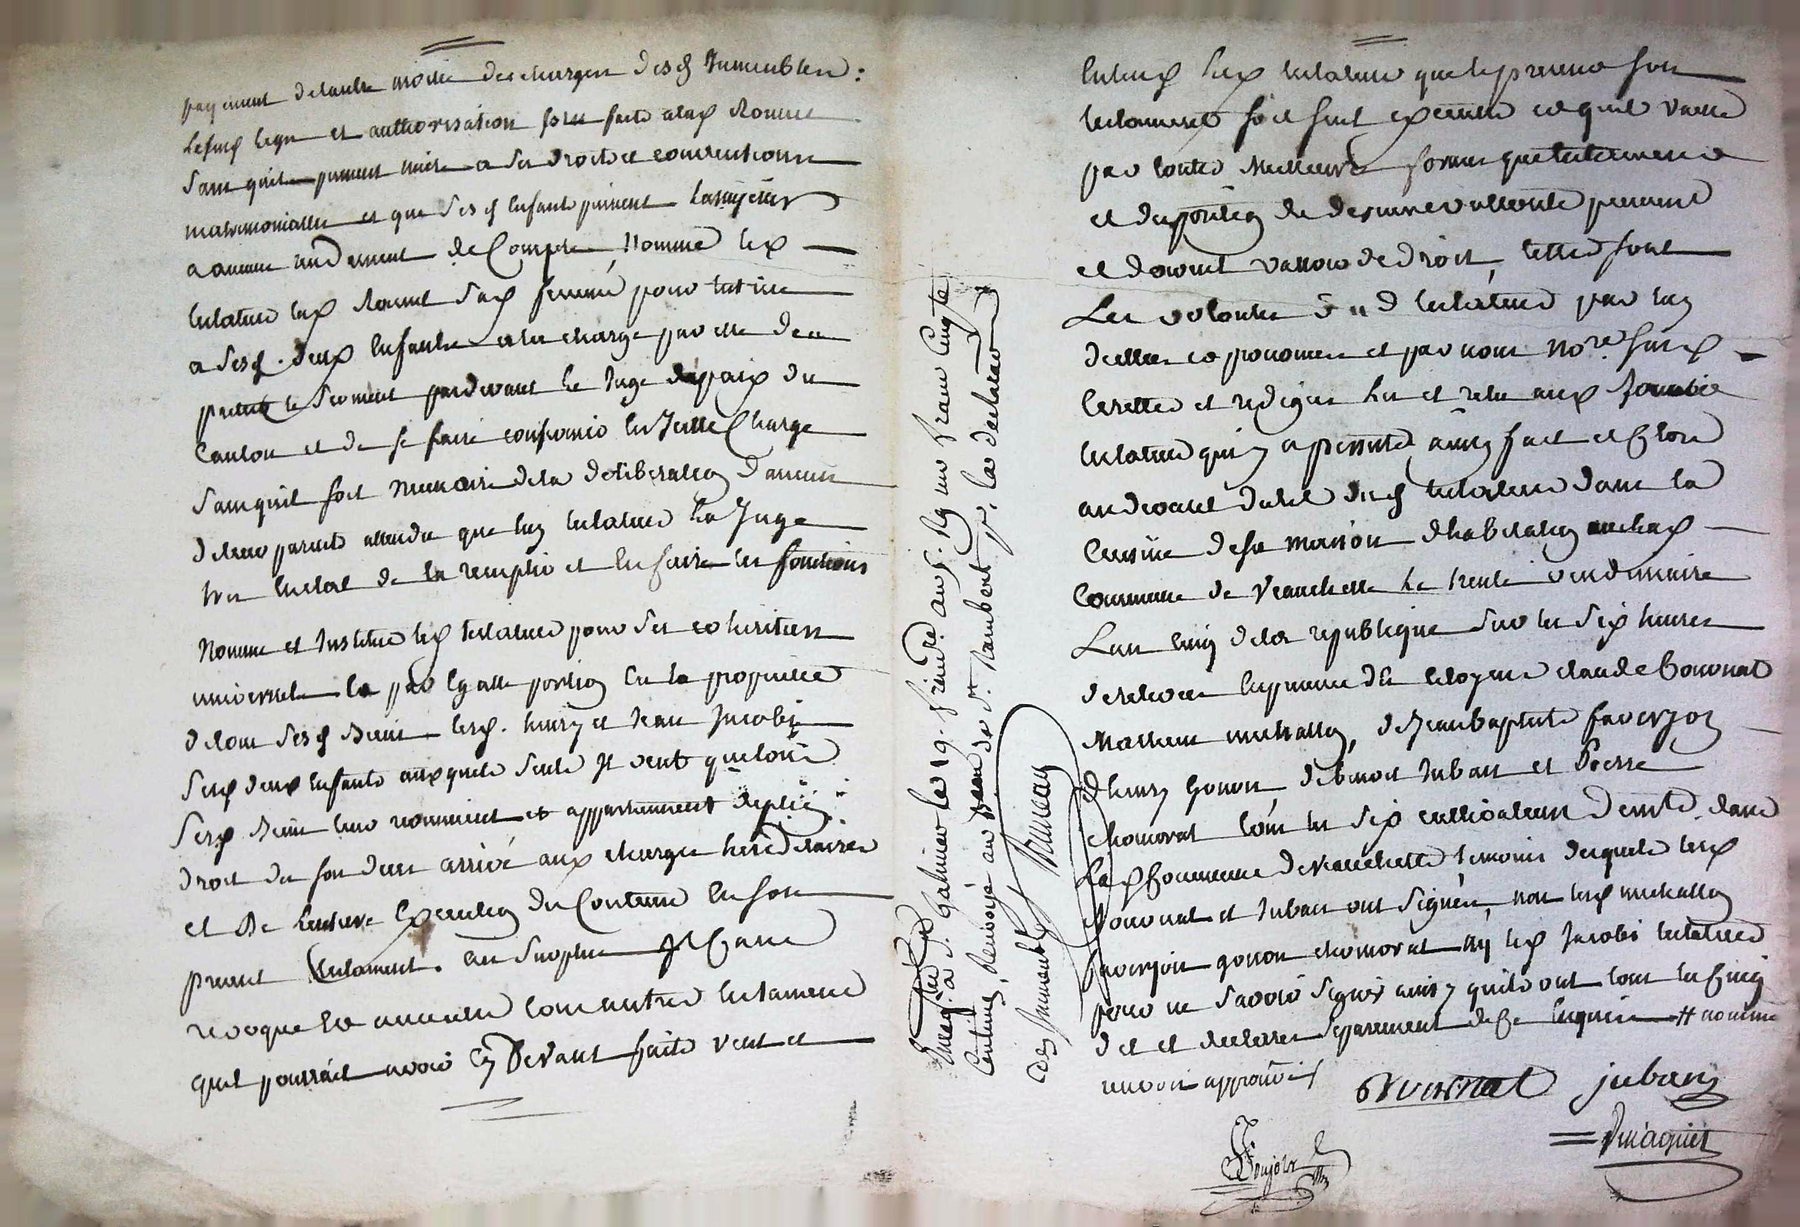 payement de lautre moitié des charges desd Immeubles :
Lesusd legs et authorisation sont faits alad Rounat
sans quils puissent nuire a ses droits et conventions
matrimonialles et que desd Enfants puissent Lassujétir
a aucun rendement de Compte, Nomme led
testateur lad Rounat sad femme pour tutrice
a sesd. deux Enfants a la charge par elle den
preter le serment pardevant le Juge de paix du
Canton et de se faire confirmer En Icelle Charge
sans quil soit necessaire dela deliberation daucun
deleurs parents attendu que led testateur La Juge
tres En etat de la remplir et En faire les fonctions
Nomme et Institue led testateur pour ses coheritiers
universels par Egalle portion En la propriété
de tous sesd Biens lesd. henry et Jean Jacobi
sesd deux Enfants auxquels seuls Il veut que tous
sesd Biens leur reviennent et appartiennent de plein
droit du jour de son deces arrivé aux charges hereditaires
et De Lentiere Execution du Contenu En son
present testament. au surplus Il Casse
revoque tous autres testaments
quil pourrait avoir Cy Devant faits veut et
Entend led testateur que le present son
testament soit seul executé et quil vaille
par toutes Meilleures formes que testament
et disposition de derniere vollonté peuvent
et doivent valloir de droit, telles sont
Les volontés dud testateur par luy
dictées et prononcées et par nous Nore. susd
Ecrittes et redigées lu et relu aud Jacobi
testateur qui y a persisté, ainsy fait et Clos
au devant du lit dud testateur dans la
Cuisine de sa maison d'habitation aud
Commune de Veauchette le trente vendemiaire
Lan cinq dela republique sur les six heures
de relevée En presence des Citoyens claude Bouvnat
Mathieu michallon, de Jean baptiste faverjon
d'henry gonon, de benoit Juban et Pierre
chomorat tous les six cultivateurs demts. dans
Lad Commune de Veauchette, temoins desquels lesd
Bouvnat et Juban ont signés, non lesd michallon
faverjon gonon chomorat ny led Jacobi testateur
pour ne savoir signer ainsy quils ont tous les Cinq
dit et declaré separement de Ce Enquis # nomme
renvoi approuvé
Bouvnat juban
Enregtré à St. galmier le 19. frimre. an 5. un franc Cinqte
Centimes, Renvoyé au Bureau de St. Rambert pr. la declaraon
des Immeubles